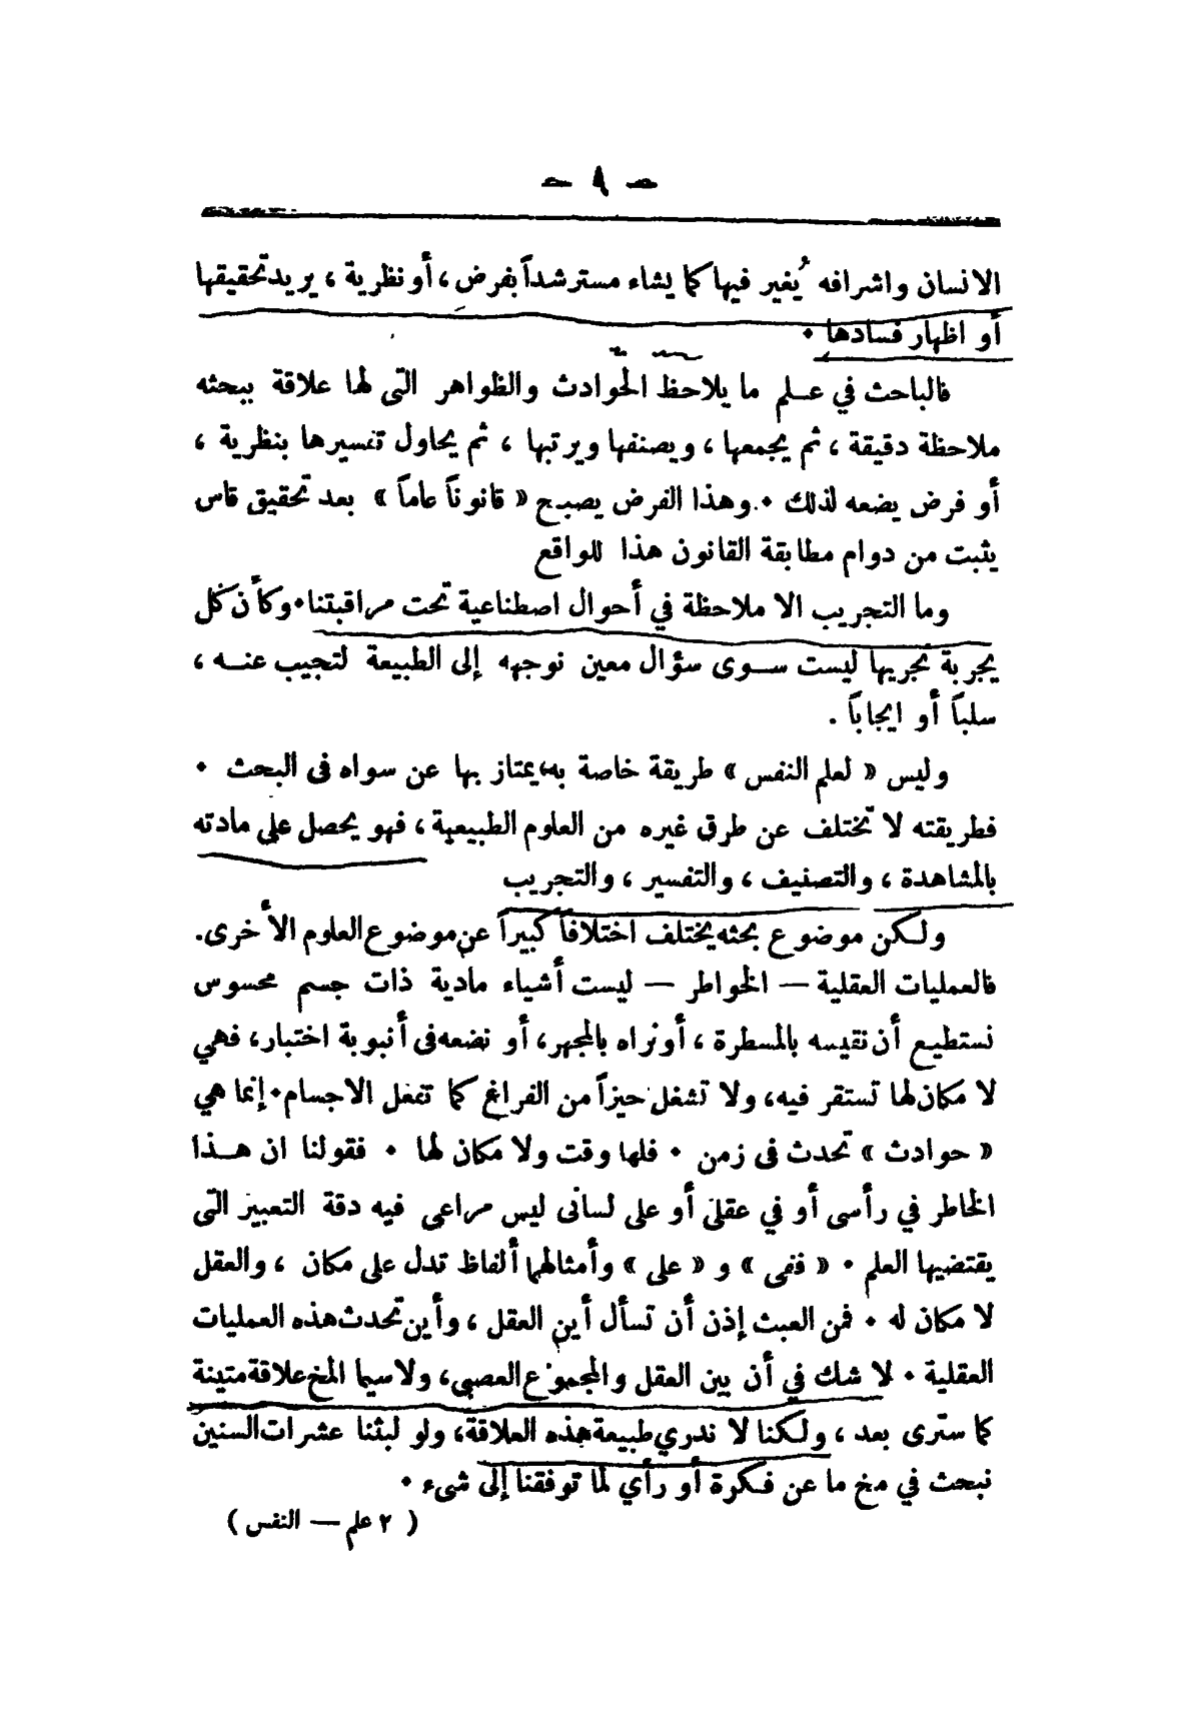 — ٩ —
الانسان واشرافه يُغير فيها كما يشاء مسترشداً بفرض ، أو نظرية ، يريد تحقيقها
أو اظهار فسادها .
فالباحث في علم ما يلاحظ الحوادث والظواهر التى لها علاقة ببحثه
ملاحظة دقيقة ، ثم يجمعها ، ويصنفها ويرتبها ، ثم يحاول تفسيرها بنظرية ،
أو فرض يضعه لذلك . وهذا الفرض يصبح « قانوناً عاماً » بعد تحقيق قاس
يثبت من دوام مطابقة القانون هذا للواقع
وما التجريب الا ملاحظة في أحوال اصطناعية تحت مراقبتنا . وكأن كل
تجربة نجريها ليست سوى سؤال معين نوجهه إلى الطبيعة لتجيب عنه ،
سلباً أو ايجاباً .
وليس « لعلم النفس » طريقة خاصة به يمتاز بها عن سواه فى البحث .
فطريقته لا تختلف عن طرق غيره من العلوم الطبيعية ، فهو يحصل على مادته
بالمشاهدة ، والتصنيف ، والتفسير ، والتجريب
ولكن موضوع بحثه يختلف اختلافاً كبيراً عن موضوع العلوم الأخرى .
فالعمليات العقلية — الخواطر — ليست أشياء مادية ذات جسم محسوس
نستطيع أن نقيسه بالمسطرة ، أو نراه بالمجهر ، أو نضعه فى أنبوبة اختبار ، فهي
لا مكان لها تستقر فيه ، ولا تشغل حيزاً من الفراغ كما تفعل الاجسام . إنما هي
« حوادث » تحدث فى زمن . فلها وقت ولا مكان لها . فقولنا ان هذا
الخاطر في رأسى أو في عقلى أو على لسانى ليس مراعى فيه دقة التعبير التى
يقتضيها العلم . « ففى » و « على » وأمثالهما ألفاظ تدل على مكان ، والعقل
لا مكان له . فمن العبث إذن أن تسأل أين العقل ، وأين تحدث هذه العمليات
العقلية . لا شك في أن بين العقل والمجموع العصبي ، ولا سيما المخ علاقة متينة
كما سترى بعد ، ولكنا لا ندري طبيعة هذه العلاقة ، ولو لبثنا عشرات السنين
نبحث في مخ ما عن فكرة أو رأي لما توفقنا إلى شىء .
( ٢ علم — النفس )